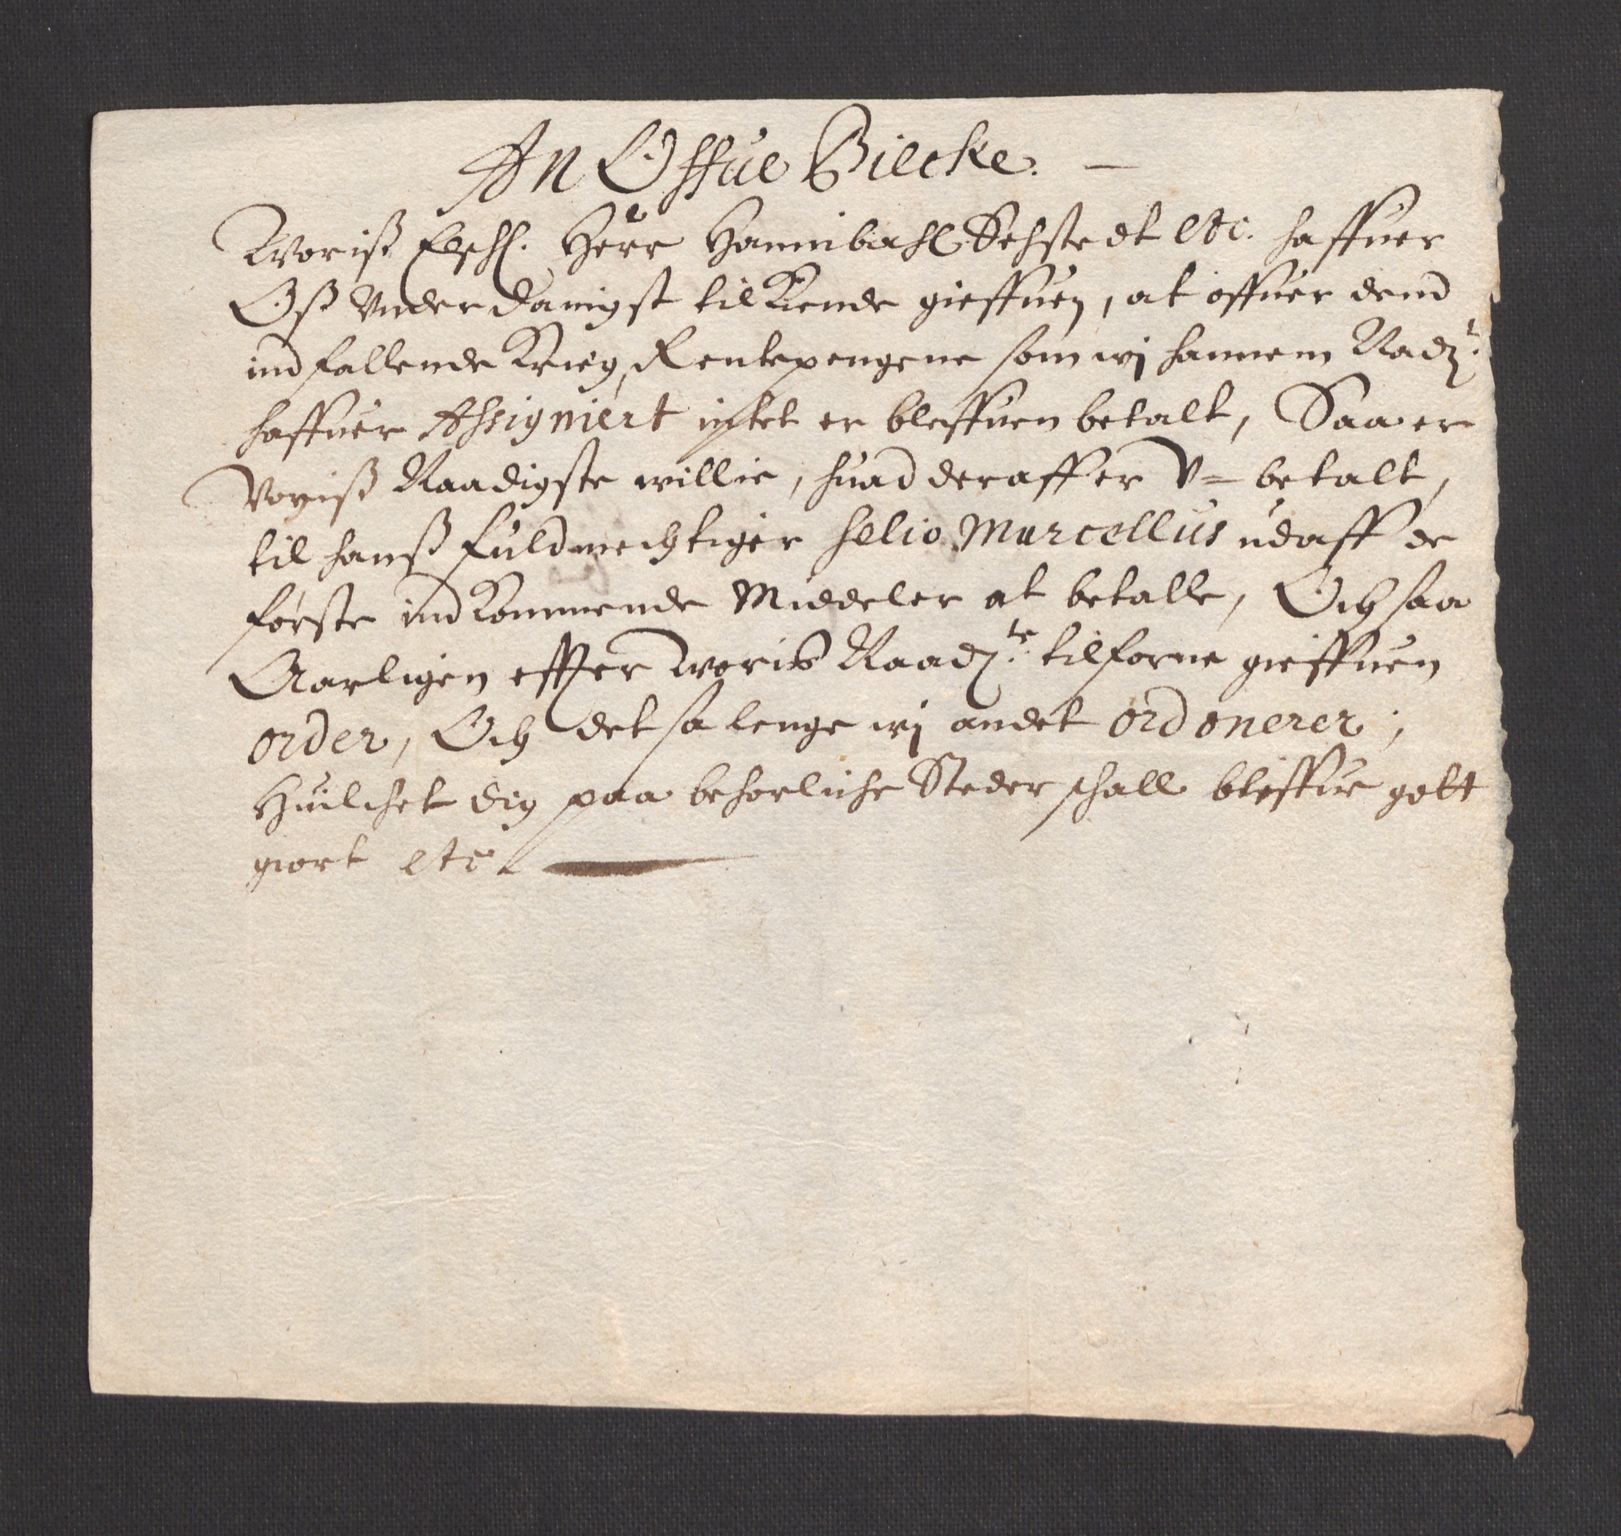 An Offue Bielcke. —
Woriß Elschl. Herr Hannibahl Sehstedt etc. haffuer
Oß Vnderdanigst tilkiende gieffuen, at offuer dend
indfallende Krieg, Rentepengene som wj hannem Nadst.
haffuer Assigniert intet er bleffuen betalt, Saa er
Voriß Naadigste willie, huad deraff er V= betalt,
til hanß fuldmechtiger Selio Marcellus udaff de
første indkommende Middeler at betalle, Och saa
Aarligen effter Woriß Naadste. tilforne gieffuen
order, Och det sa lenge wj andet ordonerer;
Huilchet dig paa behorliche Steder schall bleffue gott
giort etc.